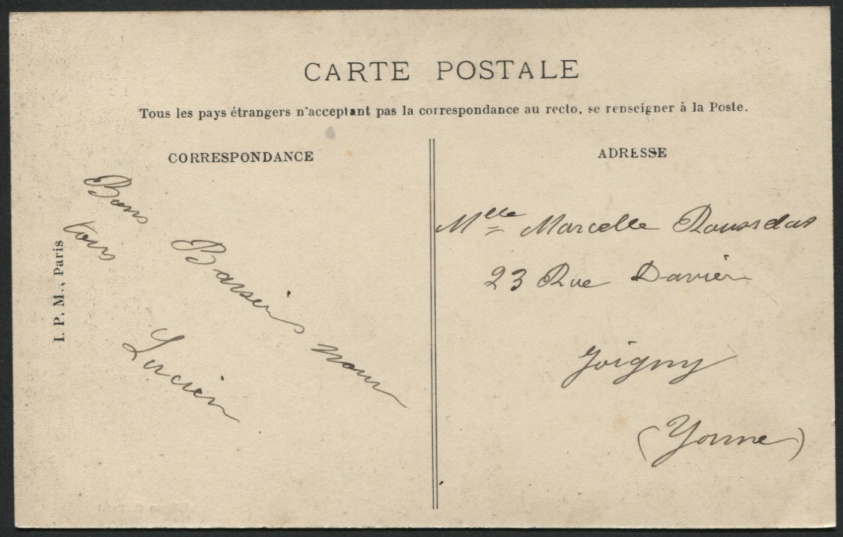 CARTE POSTALE
Tous les pays étrangers n'acceptant pas la correspondance au recto, se renseigner à la Poste.
CORRESPONDANCE
Bons Baisers pour
tous
Lucien
I. P. M., Paris
ADRESSE
Mlle Marcelle
23 Rue Davier
Joigny
(Yonne)